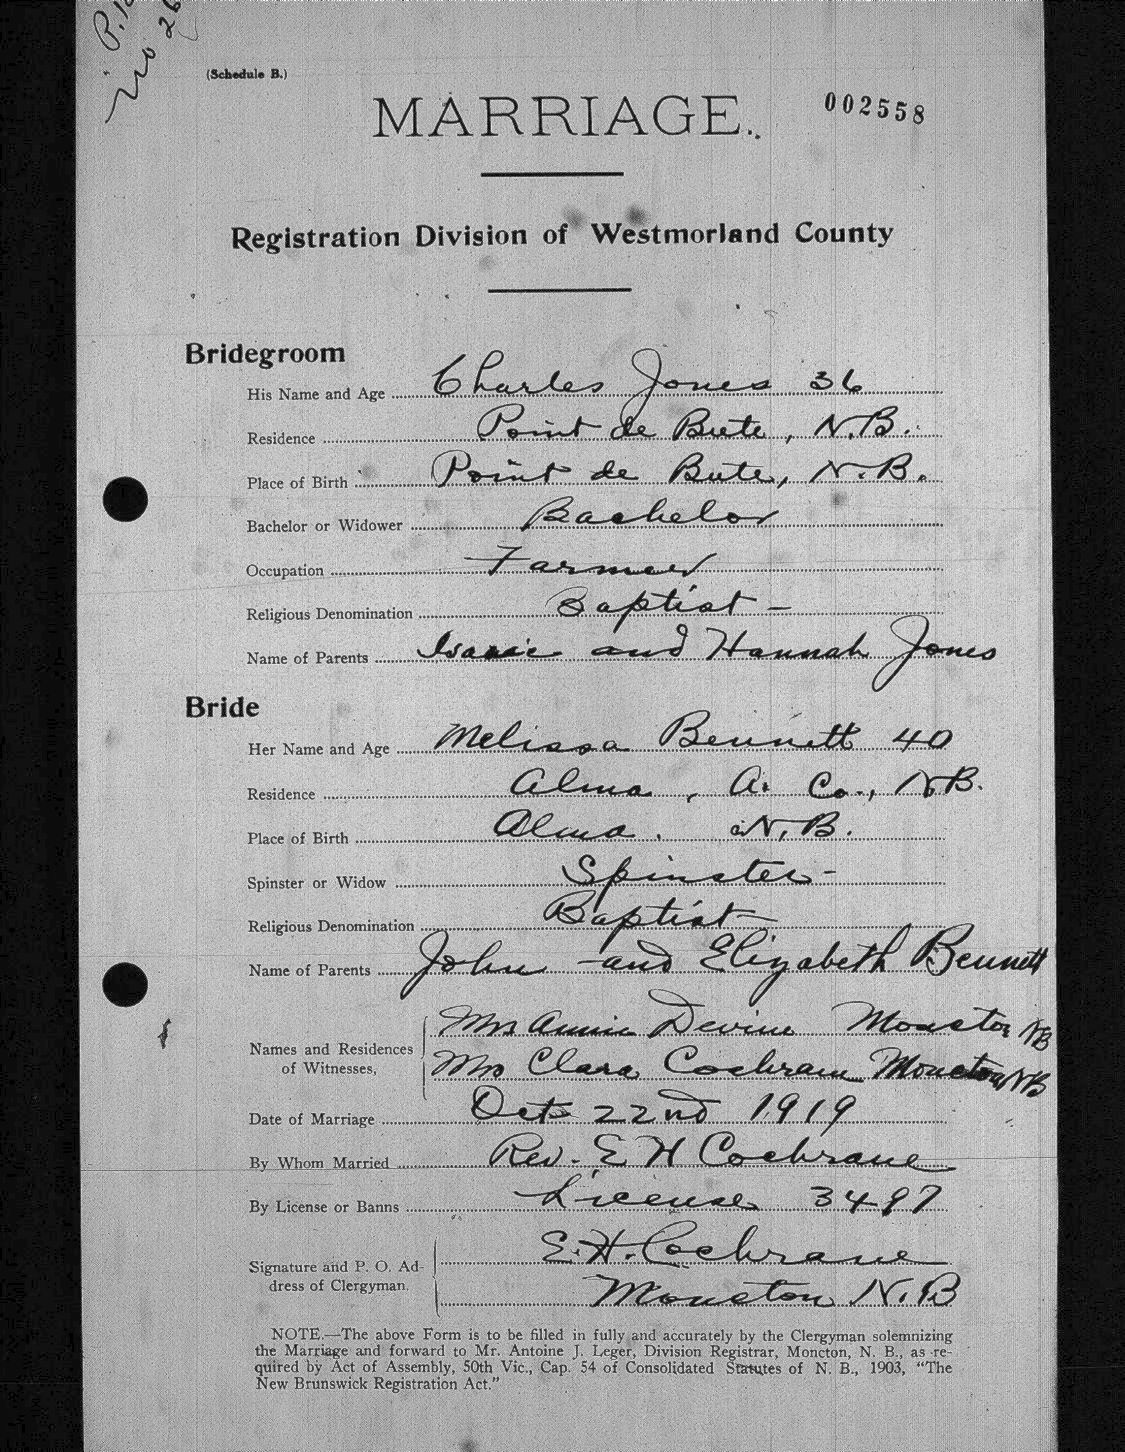 No 26
(Schedule B.)
MARRIAGE.
002558
Registration Division of Westmorland County
Bridegroom
His Name and Age Charles Jones 36
Residence Point de Bute, N.B.
Place of Birth Point de Bute, N.B.
Bachelor or Widower Bachelor
Occupation Farmer
Religious Denomination Baptist -
Name of Parents Isaac and Hannah Jones
Bride
Her Name and Age Melissa Bennett 40
Residence Alma, A. Co., N.B.
Place of Birth Alma. N.B.
Spinster or Widow Spinster -
Religious Denomination Baptist
Name of Parents John and Elizabeth Bennett
Names and Residences of Witnesses, Mrs Annie Devine Moncton NB
Mrs Clara Cochrane Moncton NB
Date of Marriage Oct 22nd 1919
By Whom Married Rev. E H Cochrane
By License or Banns License 3497
Signature and P. O. Ad- E. H. Cochrane
dress of Clergyman. Moncton N.B
NOTE.—The above Form is to be filled in fully and accurately by the Clergyman solemnizing
the Marriage and forward to Mr. Antoine J. Leger, Division Registrar, Moncton, N. B., as re-
quired by Act of Assembly, 50th Vic., Cap. 54 of Consolidated Statutes of N. B., 1903, "The
New Brunswick Registration Act."